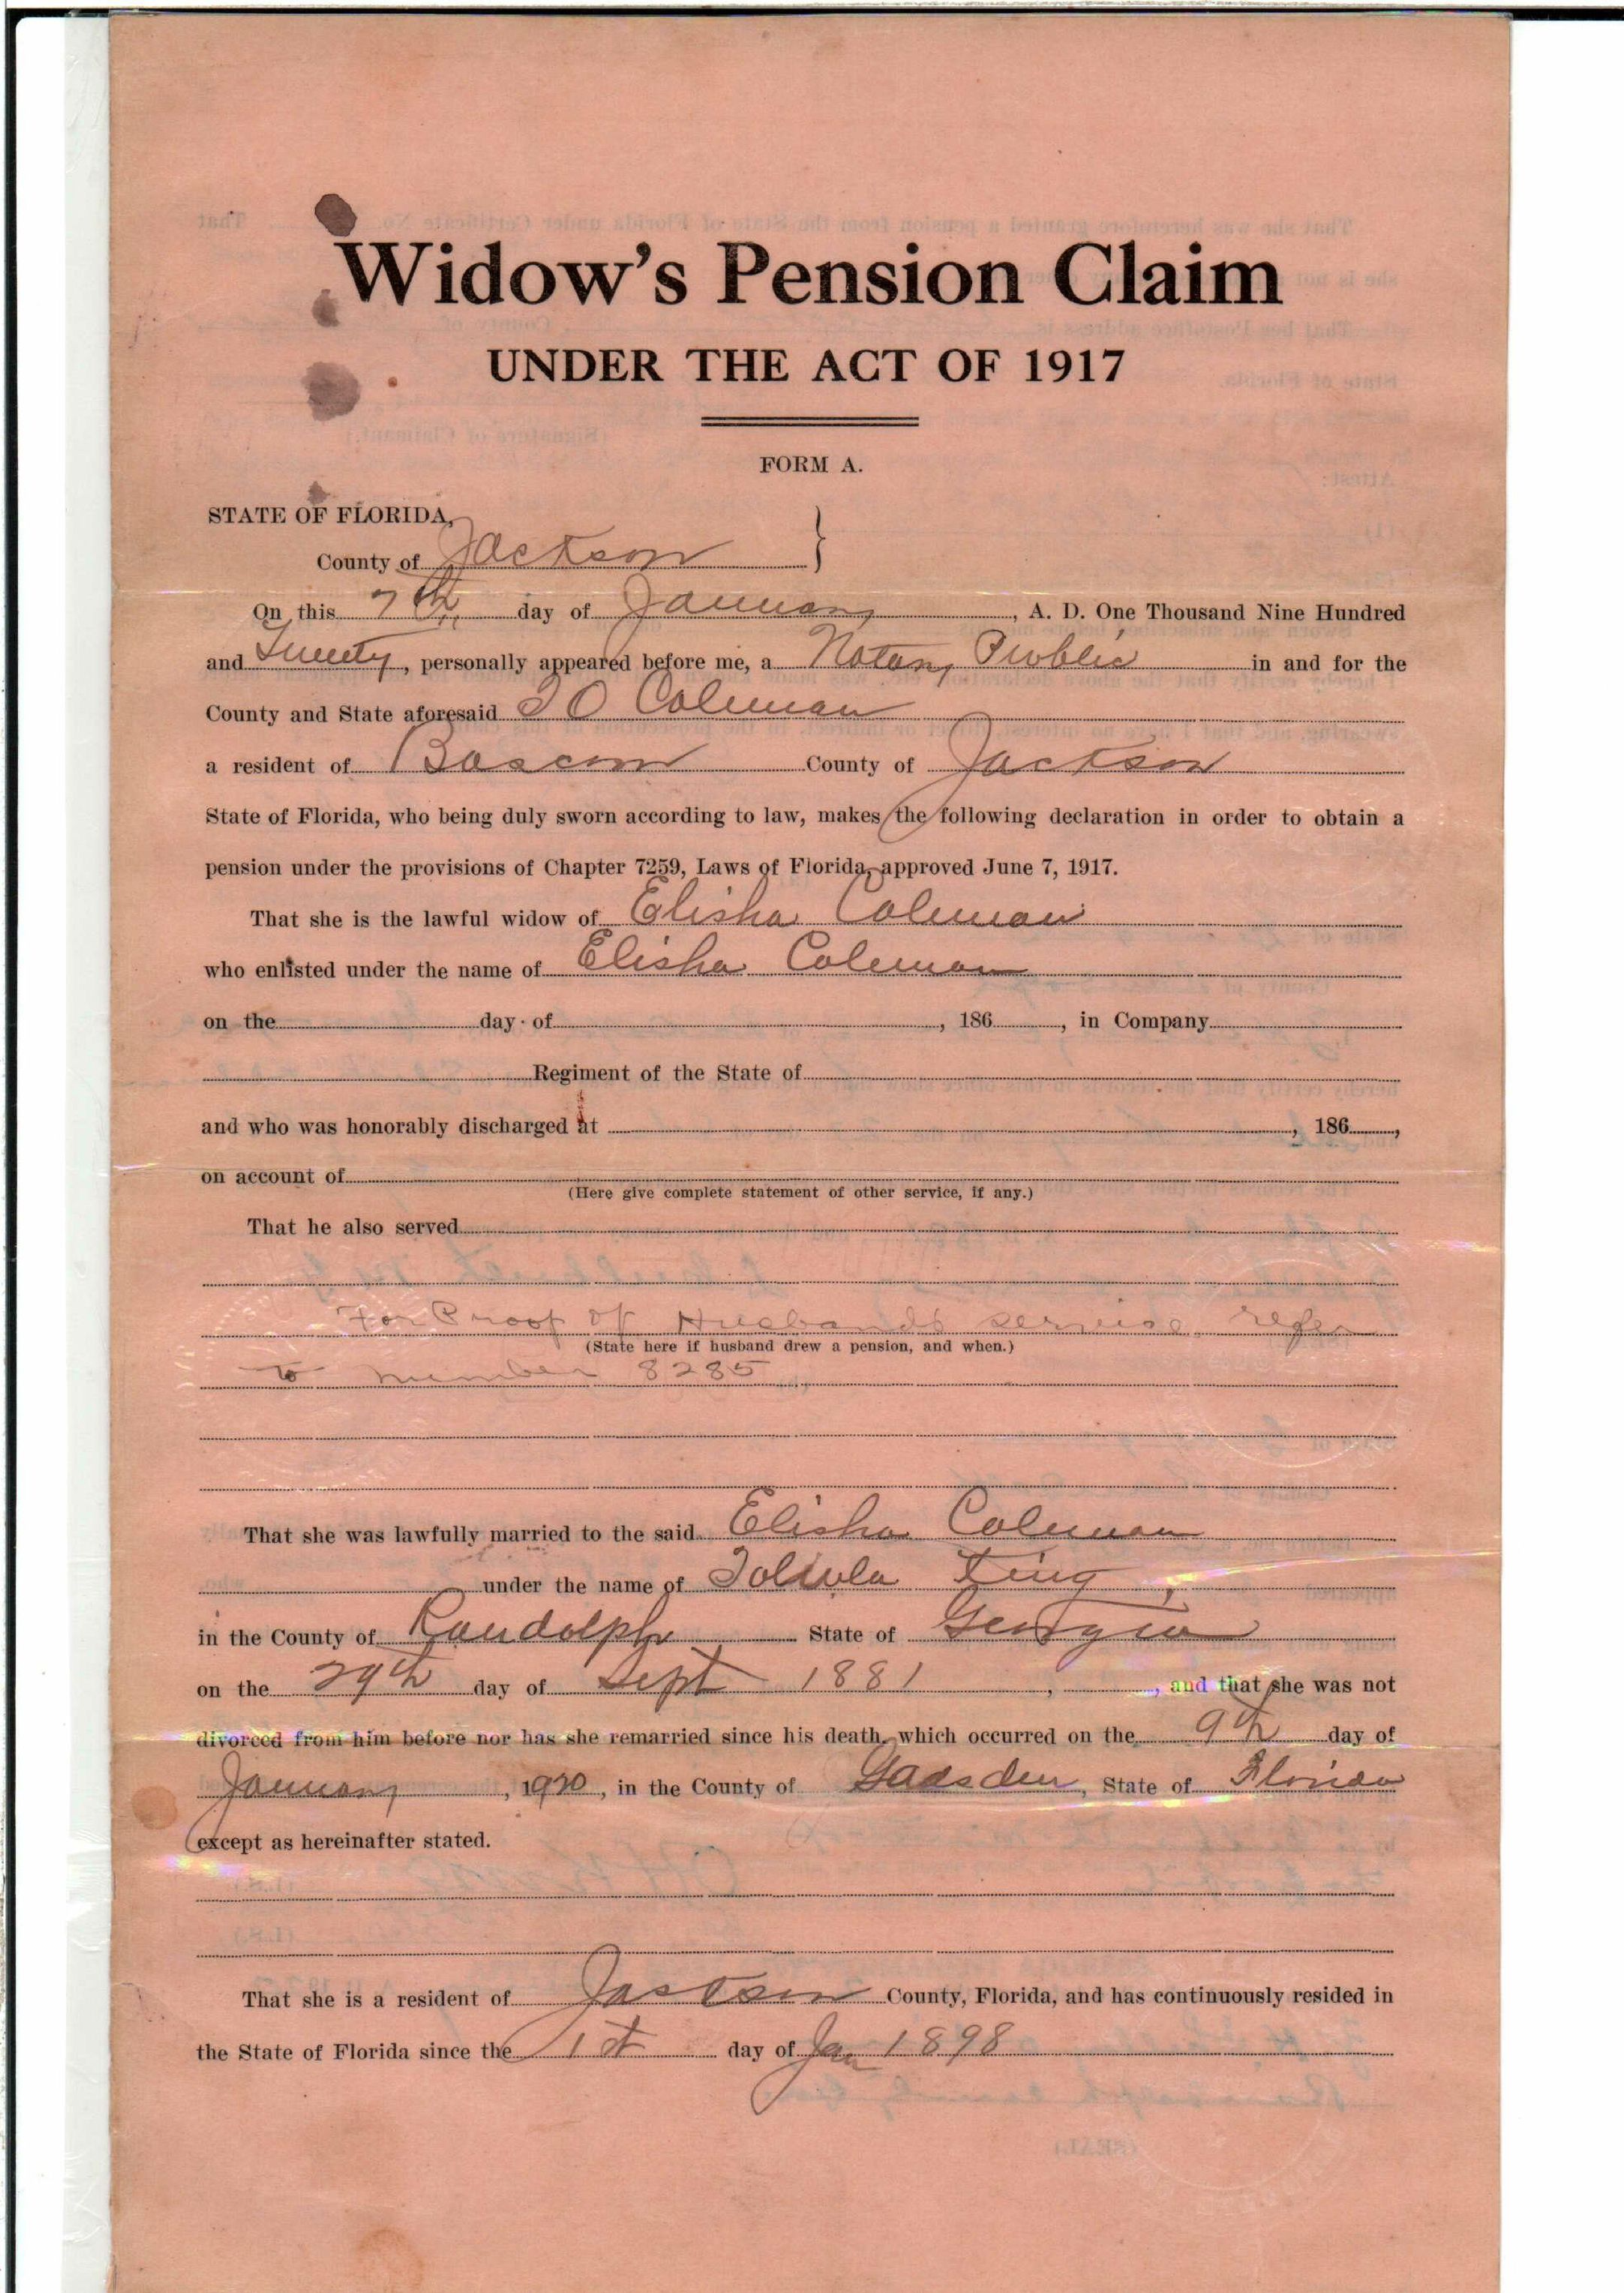 Widow's Pension Claim
UNDER THE ACT OF 1917
FORM A.
STATE OF FLORIDA,
County of Jackson
On this 7th day of January, A. D. One Thousand Nine Hundred
and Twenty, personally appeared before me, a Notary Public in and for the
County and State aforesaid I O Coleman
a resident of Bascom County of Jackson
State of Florida, who being duly sworn according to law, makes the following declaration in order to obtain a
pension under the provisions of Chapter 7259, Laws of Florida, approved June 7, 1917.
That she is the lawful widow of Elisha Coleman
who enlisted under the name of Elisha Coleman
on the day of , 186 , in Company
Regiment of the State of
and who was honorably discharged at , 186 ,
on account of
(Here give complete statement of other service, if any.)
That he also served
For Proof of Husbands service refer
(State here if husband drew a pension, and when.)
to number 8285
That she was lawfully married to the said Elisha Coleman
under the name of King,
in the County of Randolph State of Georgia
on the 29th day of Sept 1881 , , and that she was not
divorced from him before nor has she remarried since his death, which occurred on the 9th day of
January, 1920, in the County of Gadsden, State of Florida
except as hereinafter stated.
That she is a resident of Jackson County, Florida, and has continuously resided in
the State of Florida since the 1st day of Jan 1898